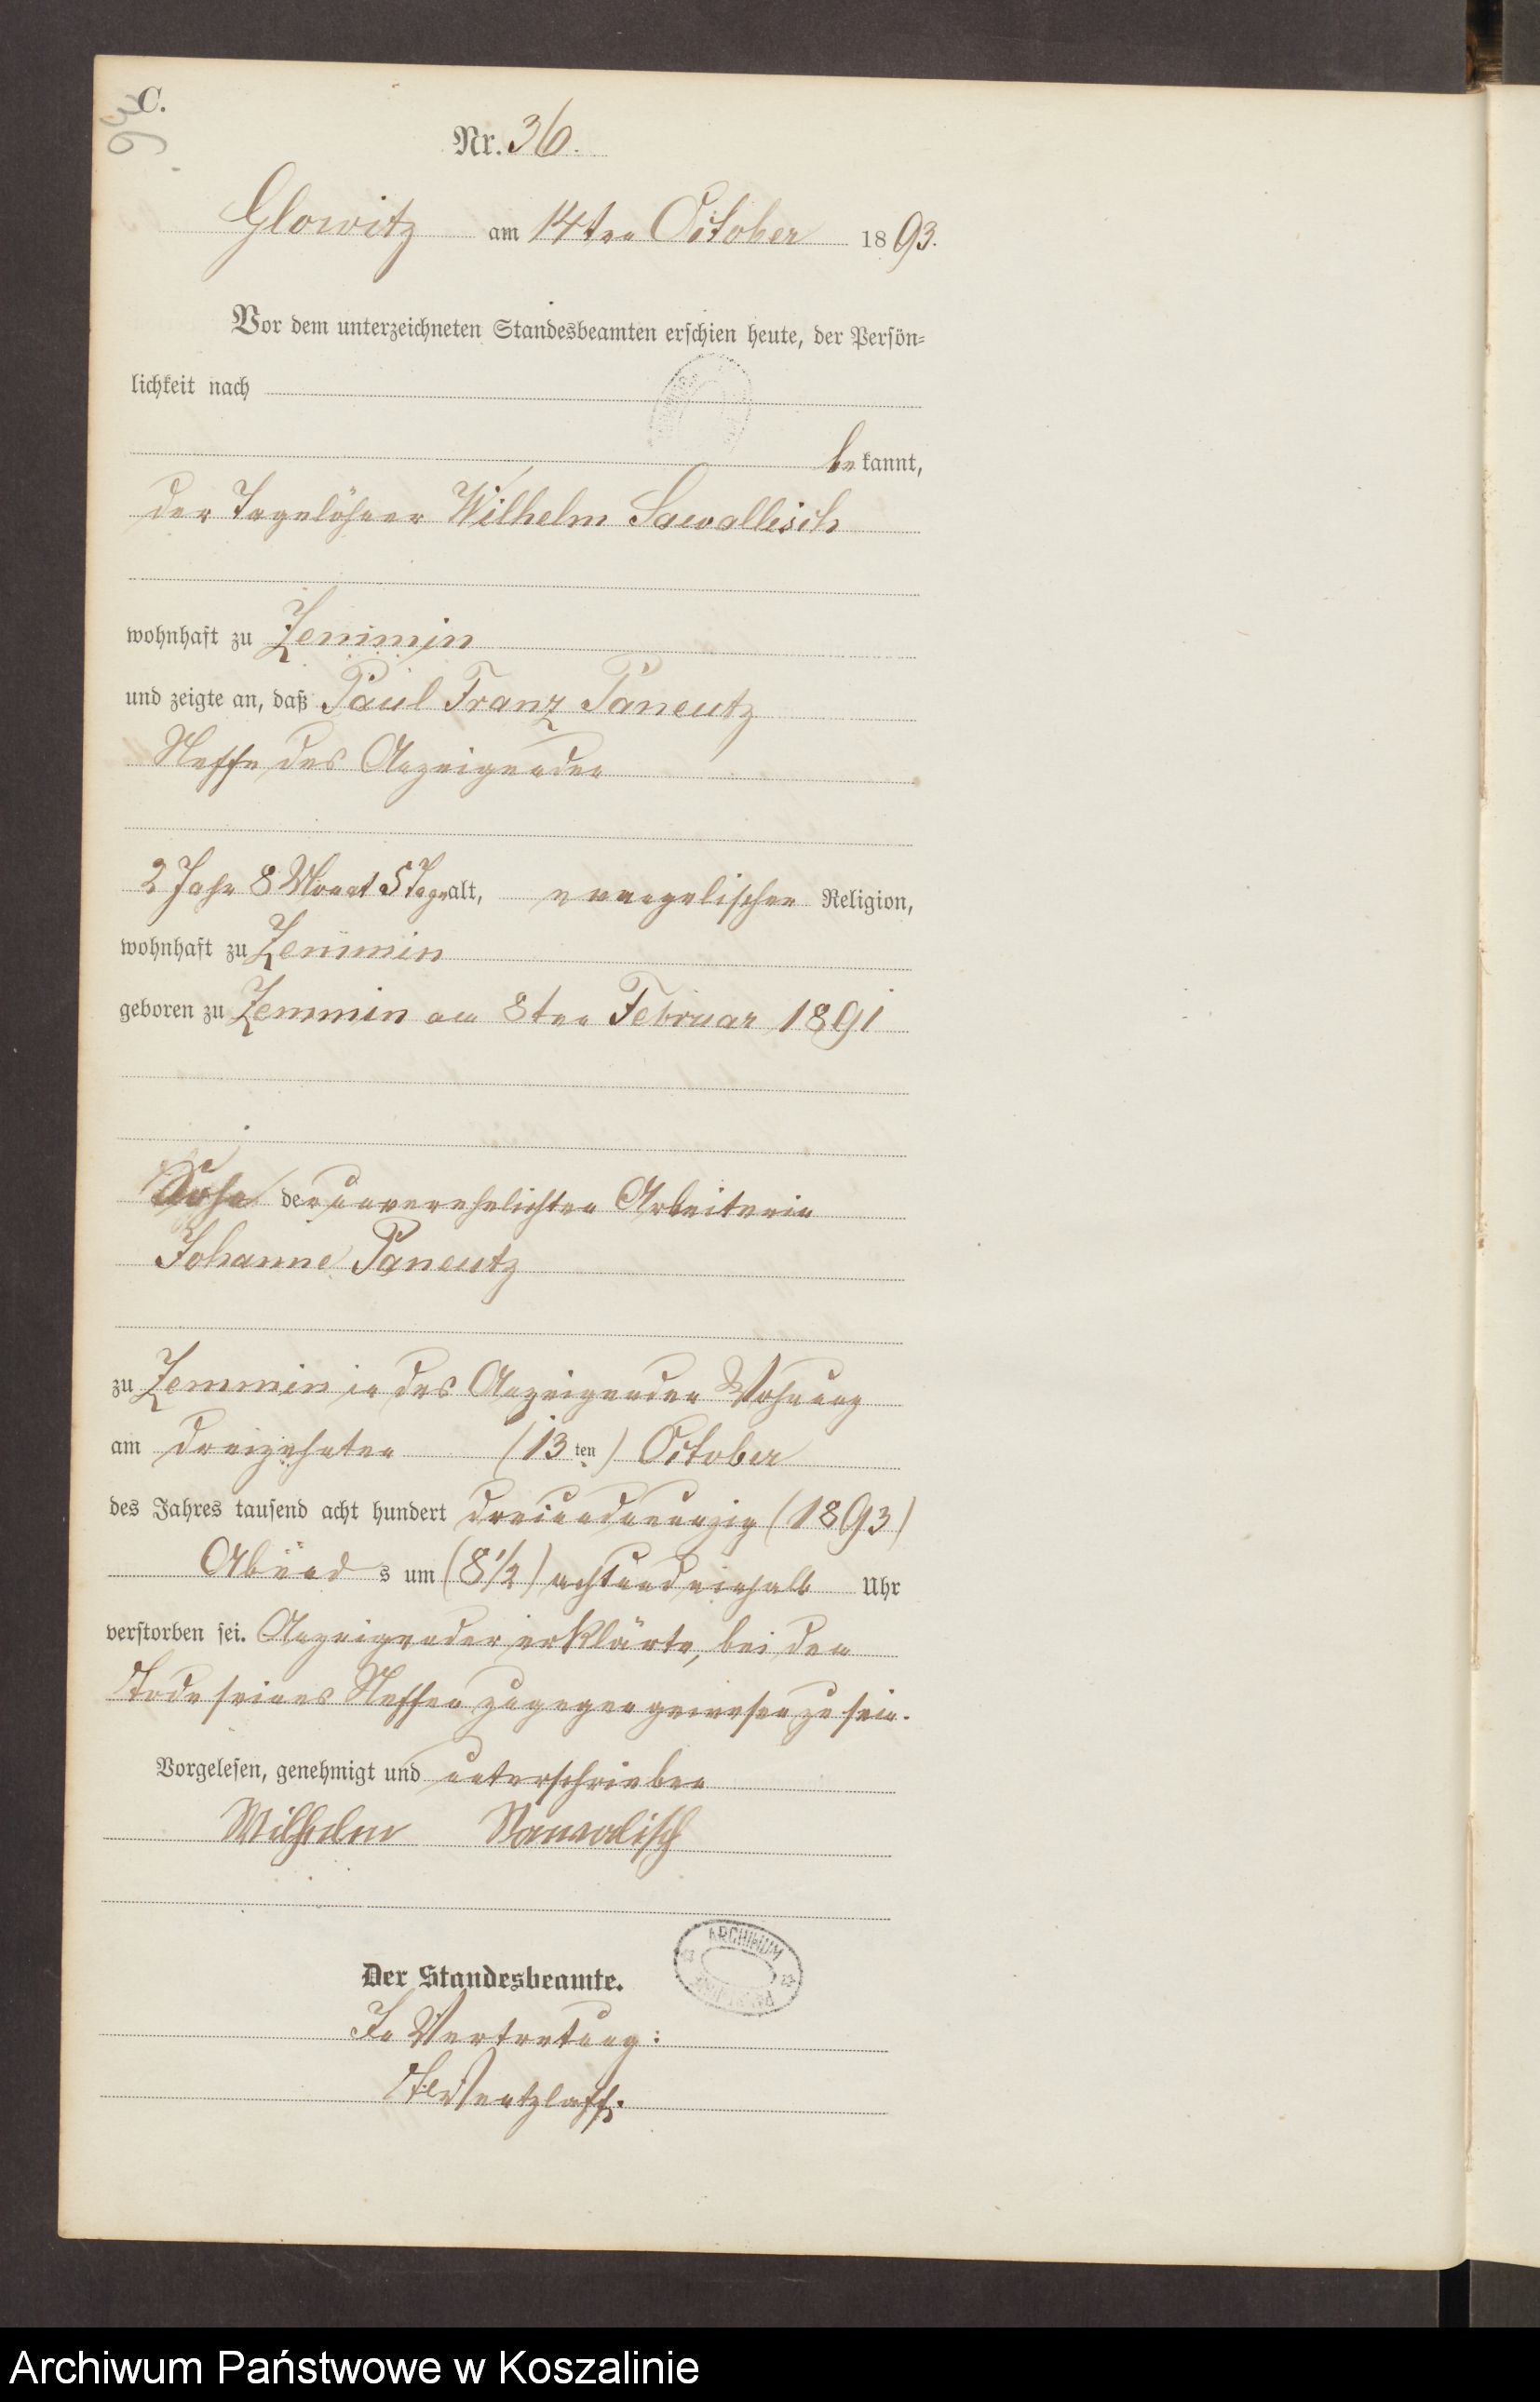 C.
94
Nr. 36.
Glowitz am 14ten October 1893.
Vor dem unterzeichneten Standesbeamten erschien heute, der Persön=
lichkeit nach
bekannt,
der Tagelöhner Wilhelm Sawallisch
wohnhaft zu Zemmin
und zeigte an, daß Paul Franz Paneutz
Neffe des Anzeigenden
2 Jahr 8 Monat 5 Tage alt, evangelischen Religion,
wohnhaft zu Zemmin
geboren zu Zemmin am 8ten Februar 1891
Sohn der unverehelichten Arbeiterin
Johanne Paneutz
zu Zemmin in des Anzeigenden Wohnung
am dreizehnten (13ten) October
des Jahres tausend acht hundert dreiundneunzig (1893)
Abends um (8 1/2) achtundeinhalb Uhr
verstorben sei. Anzeigender erklärte, bei dem
Tode seines Neffen zugegen gewesen zu sein.
Vorgelesen, genehmigt und unterschrieben
Wilhelm Sawalisch
ARCHIWUM
Der Standesbeamte.
In Vertretung:
Wentzlaff.
Archiwum Państwowe w Koszalinie